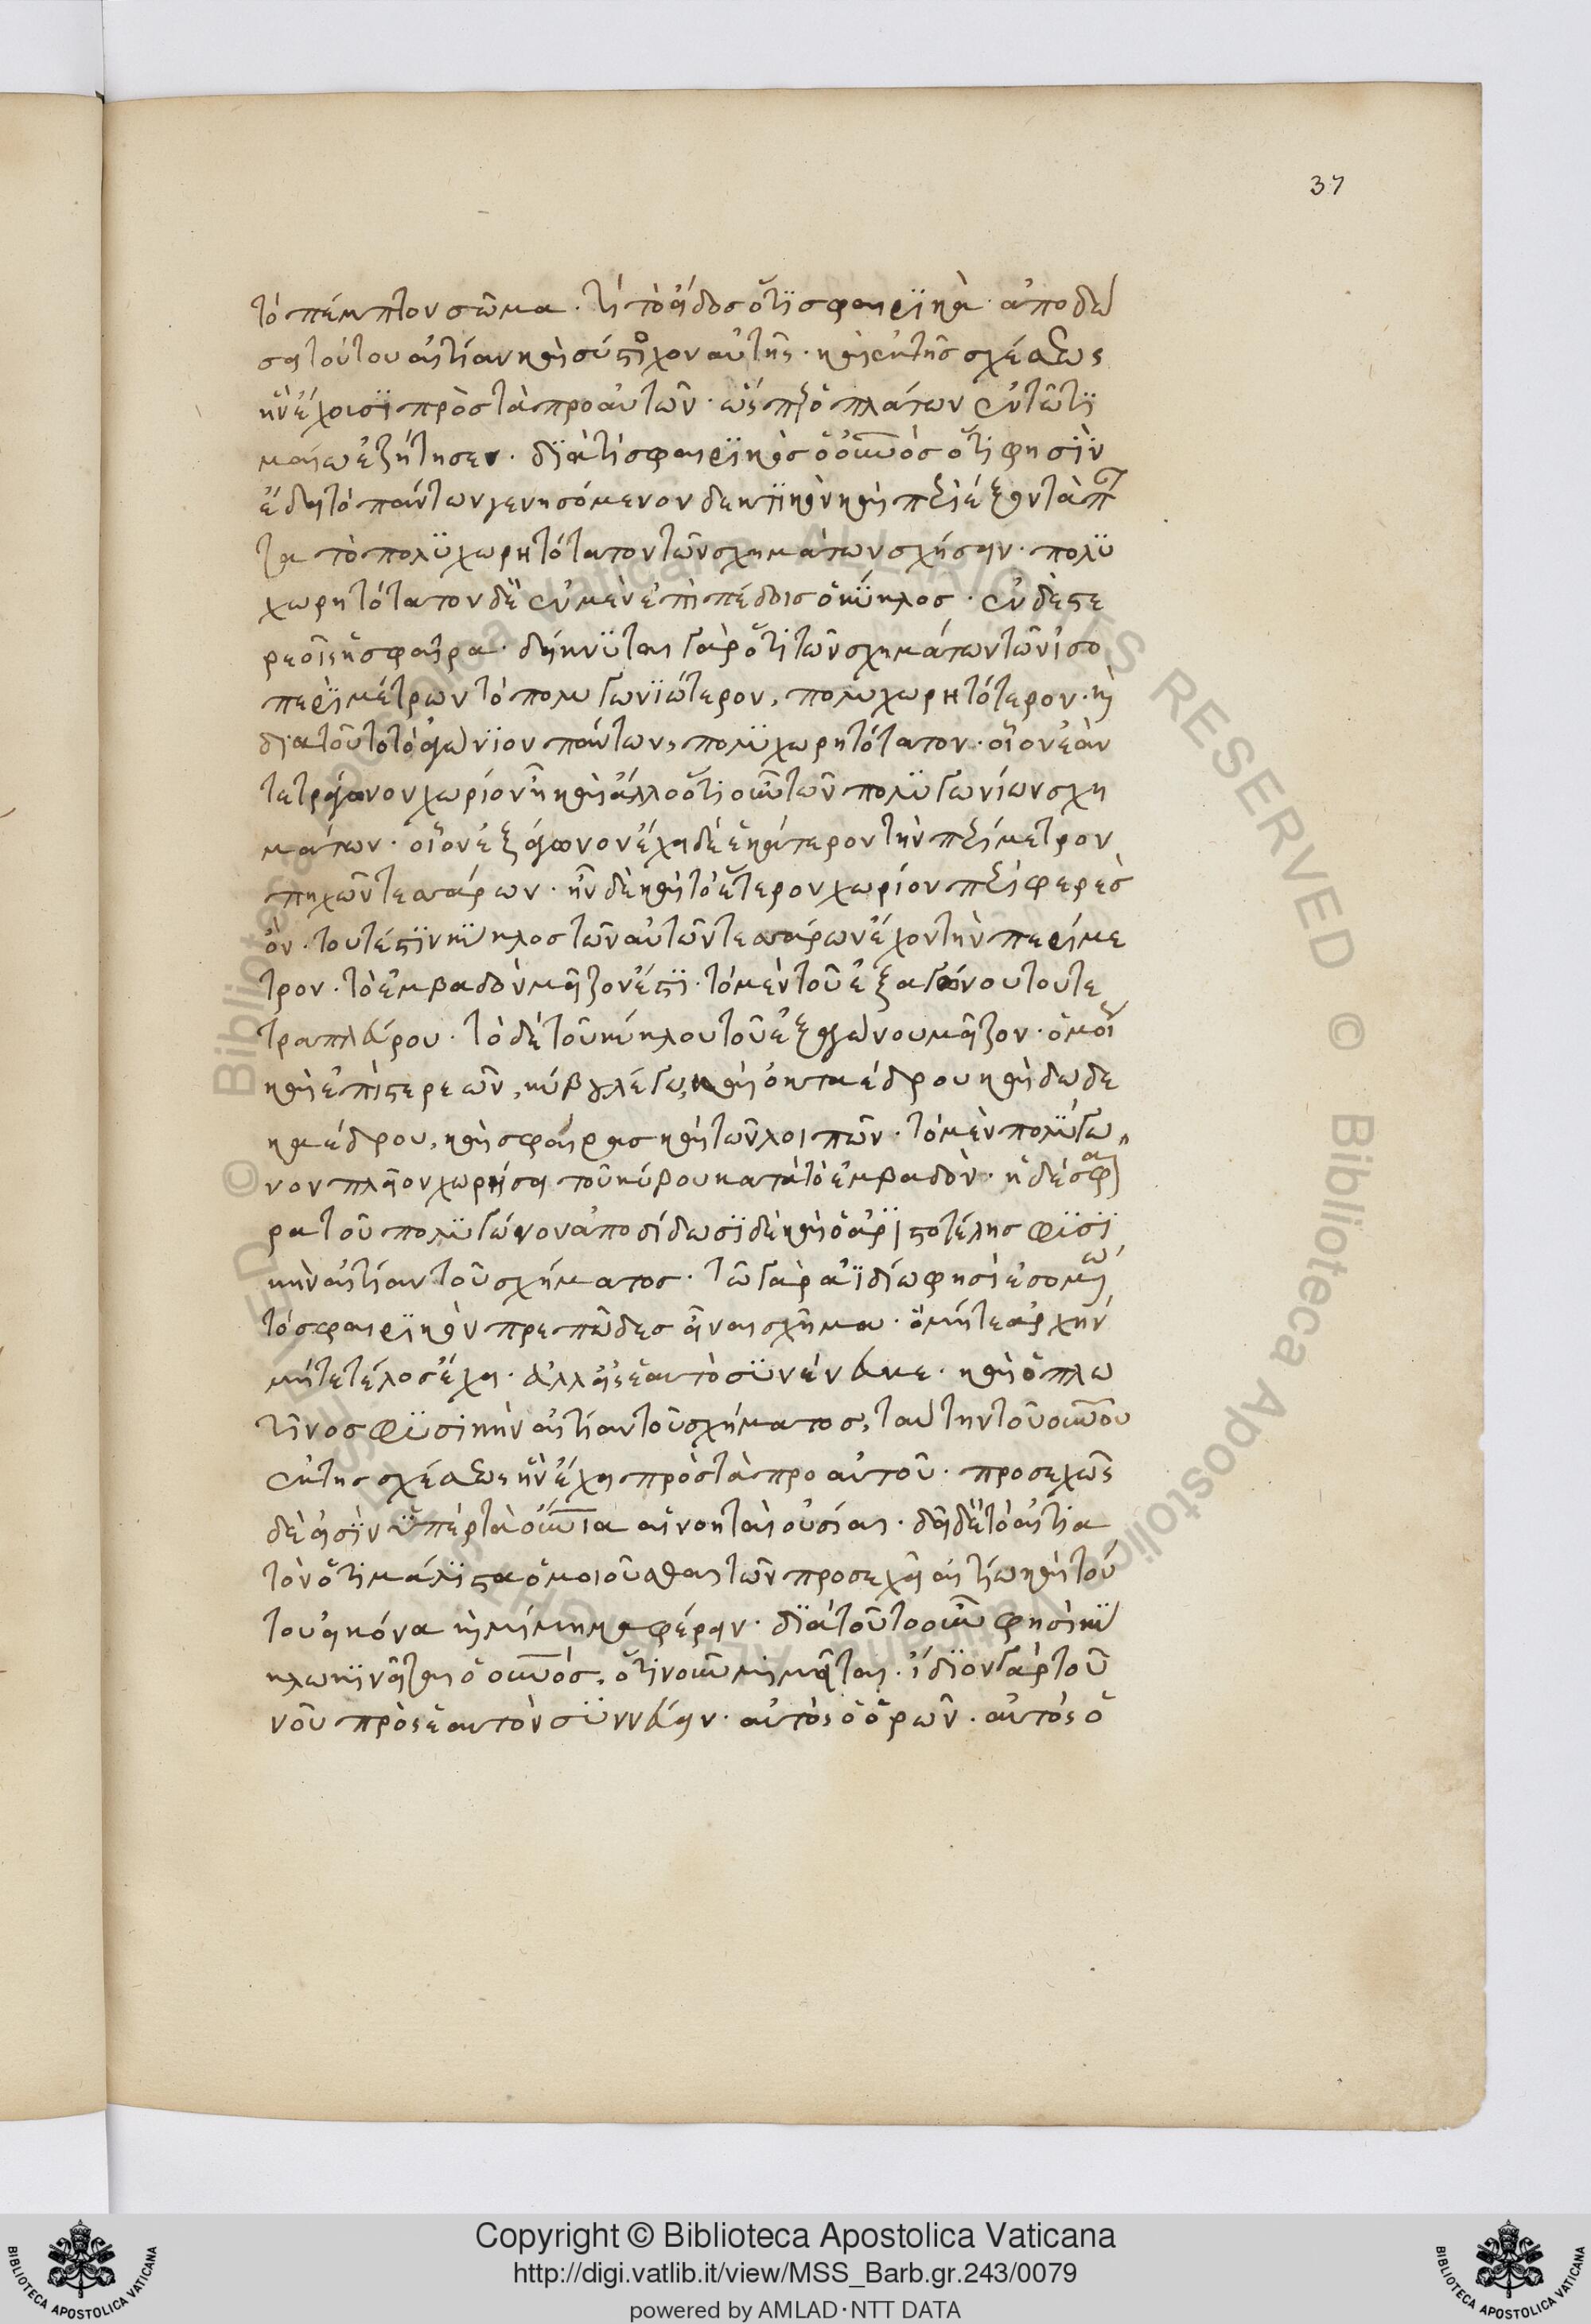 37
τὸ πέμπτον σῶμα · τί τὸ εἶδος ὅτι σφαιρικὰ · ἀποδώ
σει τούτου αἰτίαν καὶ σύστοιχον αὐτῆς · καὶ ἐκ τῆς σχέσεως
ἣν ἔχουσι πρὸς τὰ προ αὐτῶν · ὥσπερ ὁ πλάτων ἐν τῶ τι
μαίω ἐζήτησεν · διατί σφαιρικὸς ὁ οὐνὸς ὅτι φησὶν
ἔδει τὸ πάντων γενησόμενον δεκτικὸν καὶ περιέξοντα πάν
τα τὸ πολυχωρητότατον τῶν σχημάτων σχήσειν · πολυ
χωρητότατον δὲ ἐν μὲν ἐπιπέδοις ὁ κύκλος · ἐν δὲ στε
ρεοῖς ἡ σφαῖρα · δείκνυται γὰρ ὅτι τῶν σχημάτων τῶν ἰσο
περιμέτρων τὸ πολυγωνιώτερον, πολυχωρητότερον · καὶ
διατοῦτο τὸ ἀγώνιον πάντων, πολυχωρητότατον · οἷον ἐὰν
τετράγωνον χωρίον ἦ καὶ ἄλλο ὅτι οὖν τῶν πολυγωνίων σχη
μάτων · οἷον ἑξάγωνον ἔχει δὲ ἑκάτερον τὴν περίμετρον
πηχῶν τεσσάρων · ἦν δὲ καὶ τὸ ἕτερον χωρίον περιφερὲς
ὂν · τουτέστιν κύκλος τῶν αὐτῶν τεσσάρων ἔχον τὴν περίμε
τρον · τὸ ἐμβαδὸν μεῖζον ἔστι · τὸ μὲν τοῦ ἑξαγώνου του τε
τραπλεύρου · τὸ δὲ τοῦ κύκλου τοῦ ἑξαγώνου μεῖζον · ὁμοί
καὶ ἐπὶ στερεῶν, κύβου λέγω, καὶ ὀκταέδρου καὶ δωδε
καέδρου, καὶ σφαίρας καὶ τῶν λοιπῶν · τὸ μὲν πολύγω
νον πλεῖον χωρήσει τοῦ κύβου κατὰ τὸ ἐμβαδὸν · ἡ δὲ σφαῖ
ρα τοῦ πολυγώνον ἀποδίδωσι δὲ καὶ ὁ ἀριστοτέλης φυσι
κὴν αἰτίαν τοῦ σχήματος · τῶ γὰρ ἀϊδίω φησὶ ἐσομένω
τὸ σφαιρικὸν πρεπῶδες εἶναι σχῆμα · ὃ μήτε ἀρχὴν
μήτε τέλος ἔχει · ἀλλ' εἰς ἑαυτὸ συνένευκε · καὶ ὁ πλω
τῖνος φυσικὴν αἰτίαν τοῦ σχήματος, ταύτην τοῦ οὐνοῦ
ἐκ της σχέσεως ἣν ἔχει πρὸς τὰ προ αὐτοῦ · προσεχῶς
δὲ εἰσὶν ὑπὲρ τὰ οὐνια αἱ νοηταὶ οὐσίαι · δεῖ δὲ τὸ αἰτια
τὸν ὅτι μάλιστα ὁμοιοῦσθαι τῶν προσεχεῖ αἰτίω καὶ τού
του εἰκόνα καὶ μίμημα φέρειν · διατοῦτο οὖν φησὶ κύ
κλω κινεῖται ὁ οὐνός, ὅτι νοῦν μιμεῖται · ἴδιον γὰρ τοῦ
νοῦ πρὸς ἑαυτὸν συννεύειν · αὐτὸς ὁ ὁρῶν · αὐτὸς ὁ
© Biblioteca Apostolica Vaticana ALL RIGHTS RESERVED
Copyright © Biblioteca Apostolica Vaticana
http://digi.vatlib.it/view/MSS_Barb.gr.243/0079
powered by AMLAD·NTT DATA
BIBLIOTECA APOSTOLICA VATICANA
BIBLIOTECA APOSTOLICA VATICANA